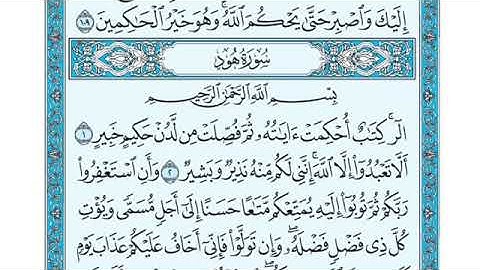 إِلَيْكَ وَاصْبِرْ حَتَّىٰ يَحْكُمَ اللَّهُ ۚ وَهُوَ خَيْرُ الْحَاكِمِينَ ١٠٩
سُورَةُ هُودٍ
بِسْمِ اللَّهِ الرَّحْمَٰنِ الرَّحِيمِ
الٓر ۚ كِتَابٌ أُحْكِمَتْ ءَايَاتُهُ ثُمَّ فُصِّلَتْ مِن لَّدُنْ حَكِيمٍ خَبِيرٍ ١
أَلَّا تَعْبُدُوا إِلَّا اللَّهَ ۚ إِنَّنِي لَكُم مِّنْهُ نَذِيرٌ وَبَشِيرٌ ٢ وَأَنِ اسْتَغْفِرُوا
رَبَّكُمْ ثُمَّ تُوبُوا إِلَيْهِ يُمَتِّعْكُم مَّتَاعًا حَسَنًا إِلَىٰ أَجَلٍ مُّسَمًّى وَيُؤْتِ
كُلَّ ذِي فَضْلٍ فَضْلَهُ ۖ وَإِن تَوَلَّوْا فَإِنِّي أَخَافُ عَلَيْكُمْ عَذَابَ يَوْمٍ